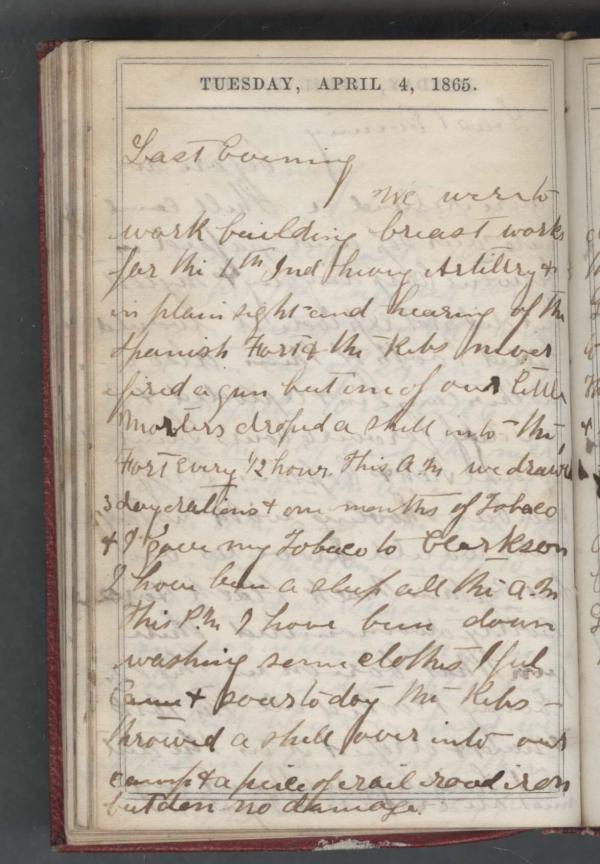 TUESDAY, APRIL 4, 1865.
Last Evening
We went to
work building breast works
for the 1th Ind Heavy Artillry &
in plain sight and hearing of the
Spanish Fort & the Rebs never
fired a gun but one of our little
Morters droped a shell into the
Fort every 1/2 hour This A.M. we draw
3 day rations & one months of Tobaco
& I gave my Tobaco to Clarkson
I have been a sleep all the A.M
This P.M I have been down
washing some clothes I feel
& sour to day The Rebs -
throwed a shell over into our
camp & a piece of rail road iron
but don no damage.